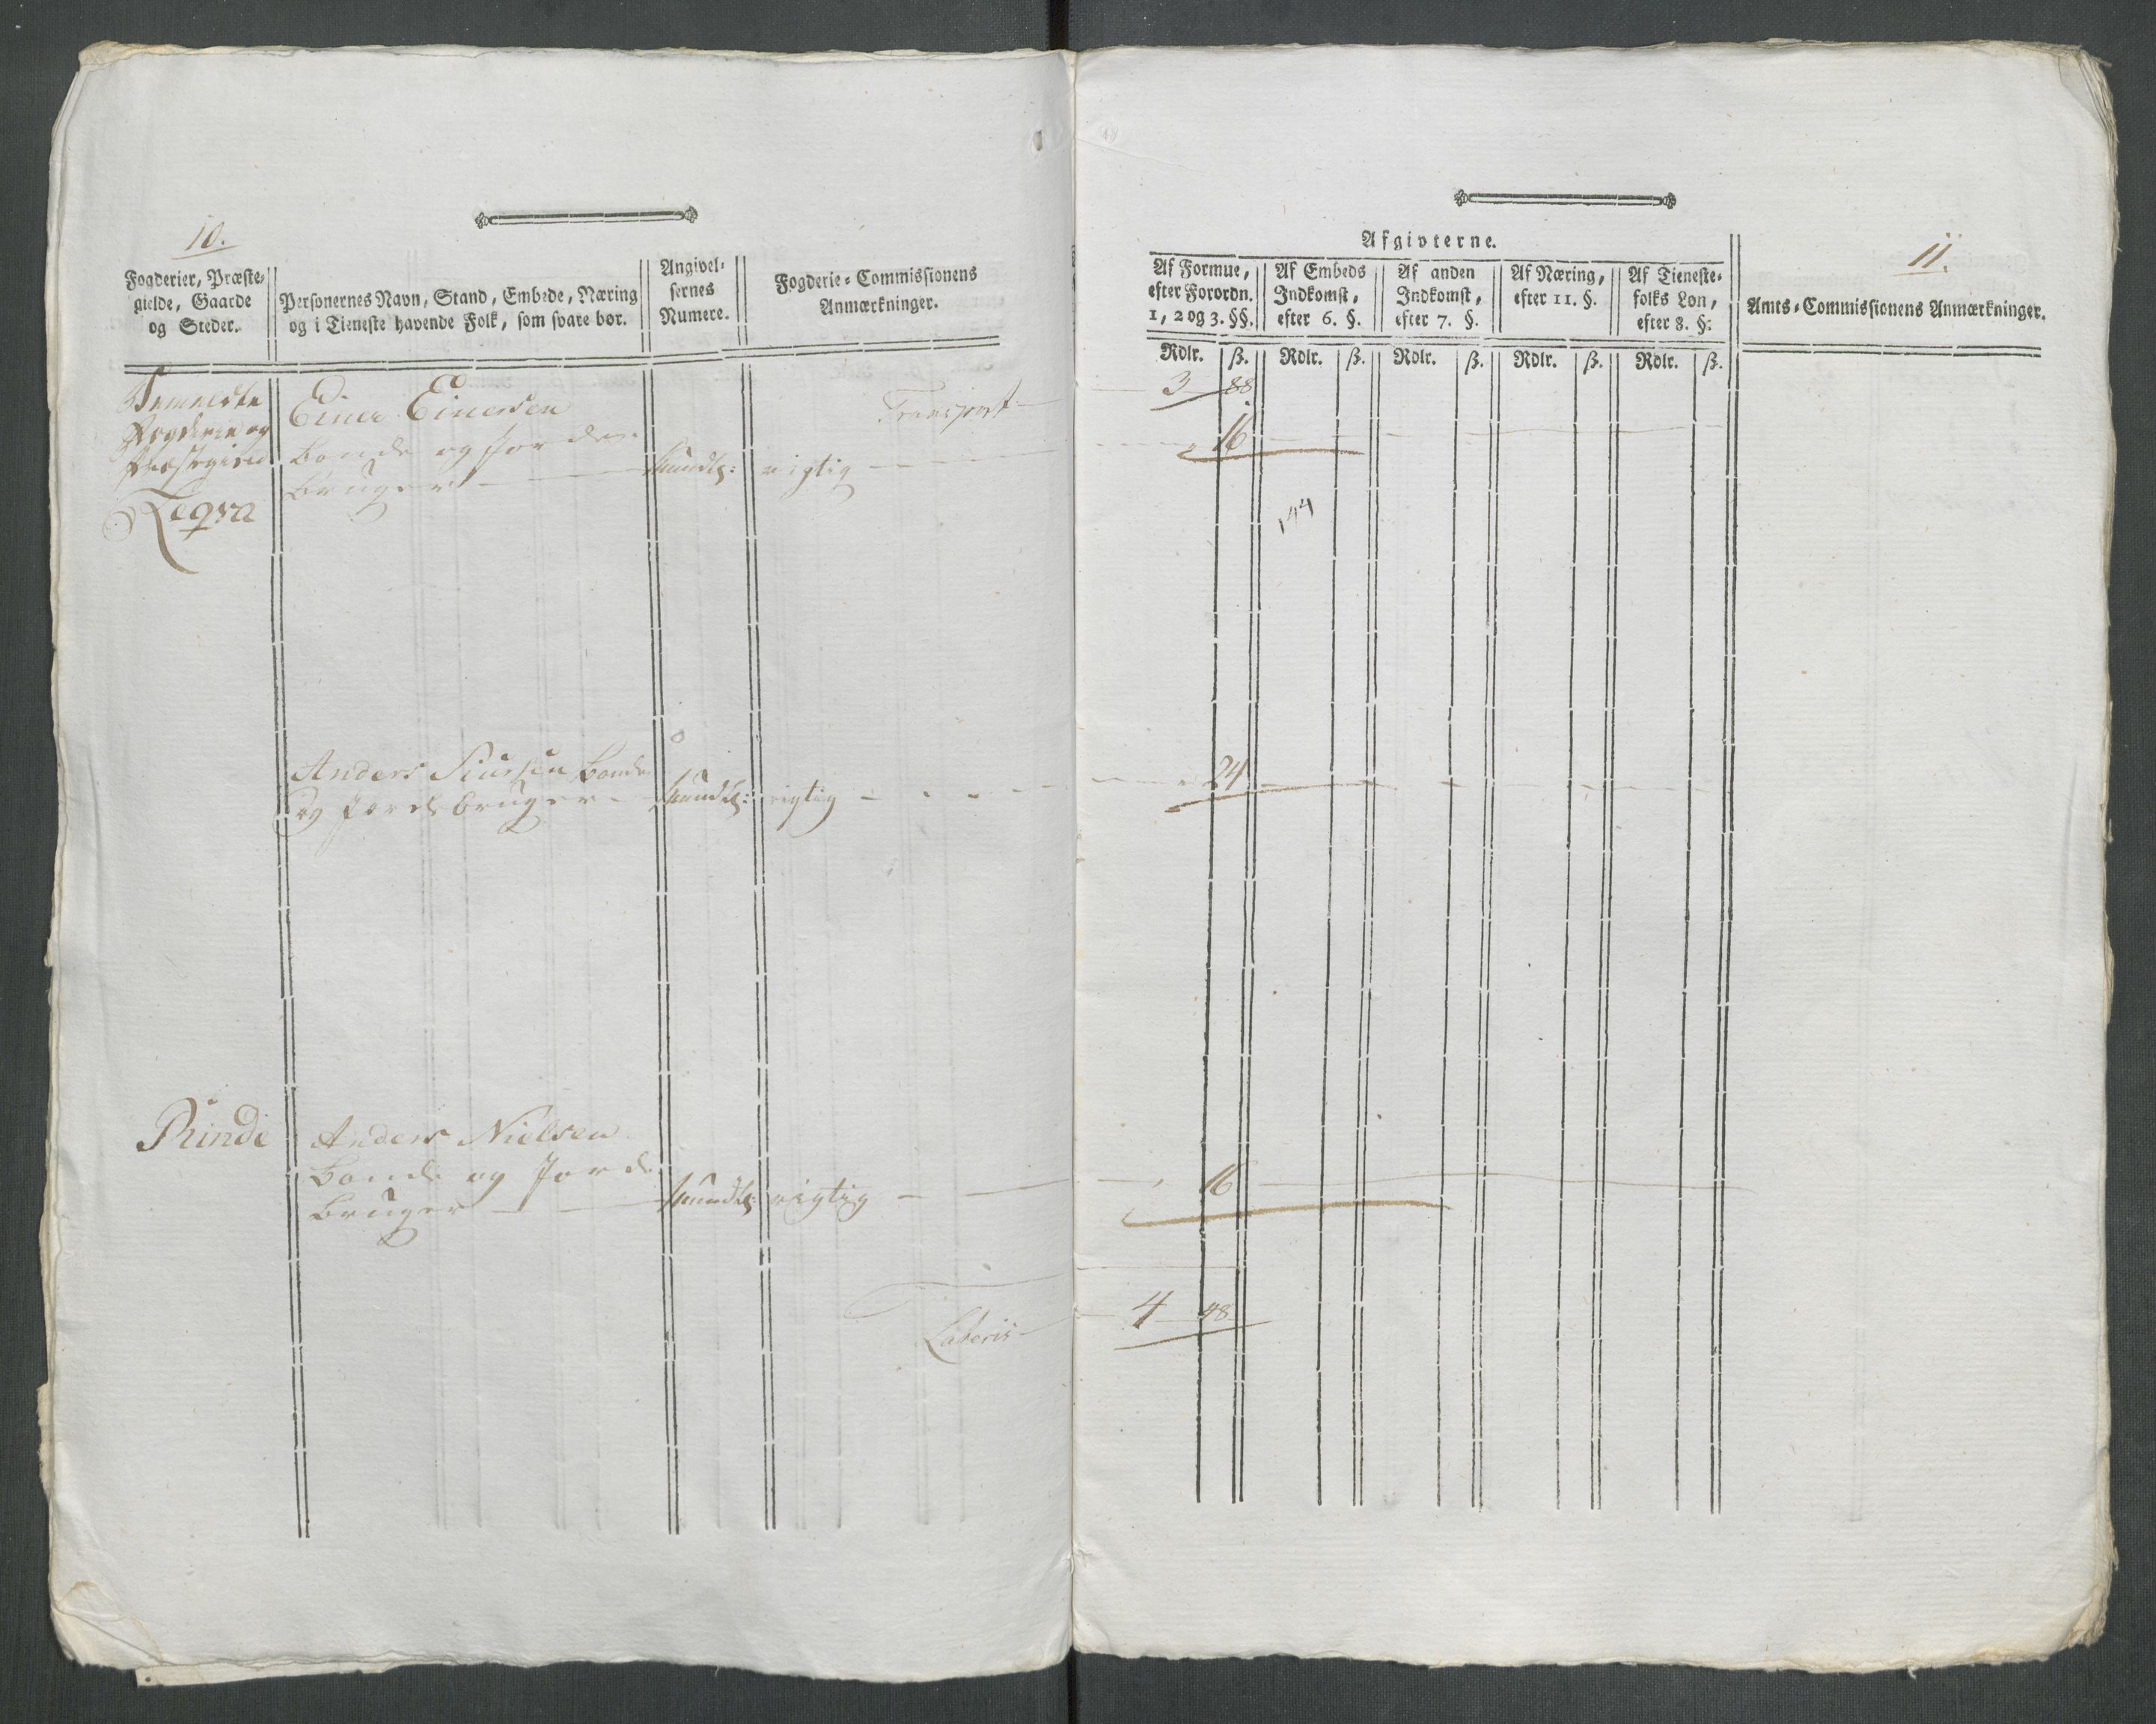 10.
Fogderier, Præste-
gielde, Gaarde
og Steder.
Personernes Navn, Stand, Embede, Næring
og i Tieneste havende Folk, som svare bør.
Angivel-
sernes
Numere.
Fogderie-Commissionens
Anmærkninger.
Fogderie og
Præstegield
Einer Einersen
bonde og Jorde
bruger
Mundtl:
rigtig
Transport
Anders Siursen bonde
og Jordbruger
Mundtl:
rigtig
Rinde
Anders Nielsen
bonde og Jord
bruger
Mundtl:
rigtig
Lateris
Afgivterne.
11.
Af Formue,
efter Forordn.
1, 2 og 3. §§.
Af Embeds
Indkomst,
efter 6. §.
Af anden
Indkomst,
efter 7. §.
Af Næring,
efter 11. §.
Af Tieneste-
folks Løn,
efter 8. §.
Amts-Commissionens Anmærkninger.
Rdlr. ß. Rdlr. ß. Rdlr. ß. Rdlr. ß. Rdlr. ß.
3 88
16
144
24
16
4 48